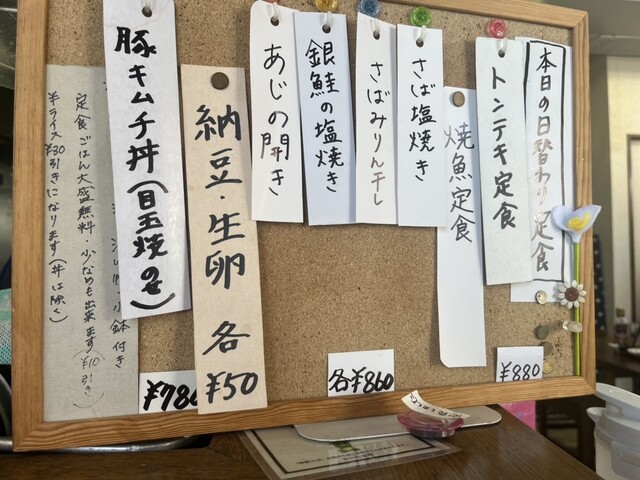 本日の日替わり定食
トンテキ定食
¥880
焼魚定食
さば塩焼き
さばみりん干し
銀鮭の塩焼き
あじの開き
各¥860
納豆・生卵 各¥50
豚キムチ丼(目玉焼のせ)
¥780
小鉢付き
定食ごはん大盛無料・少なめも出来ます(¥10引き)
半ライス¥30引きになります(丼は除く)